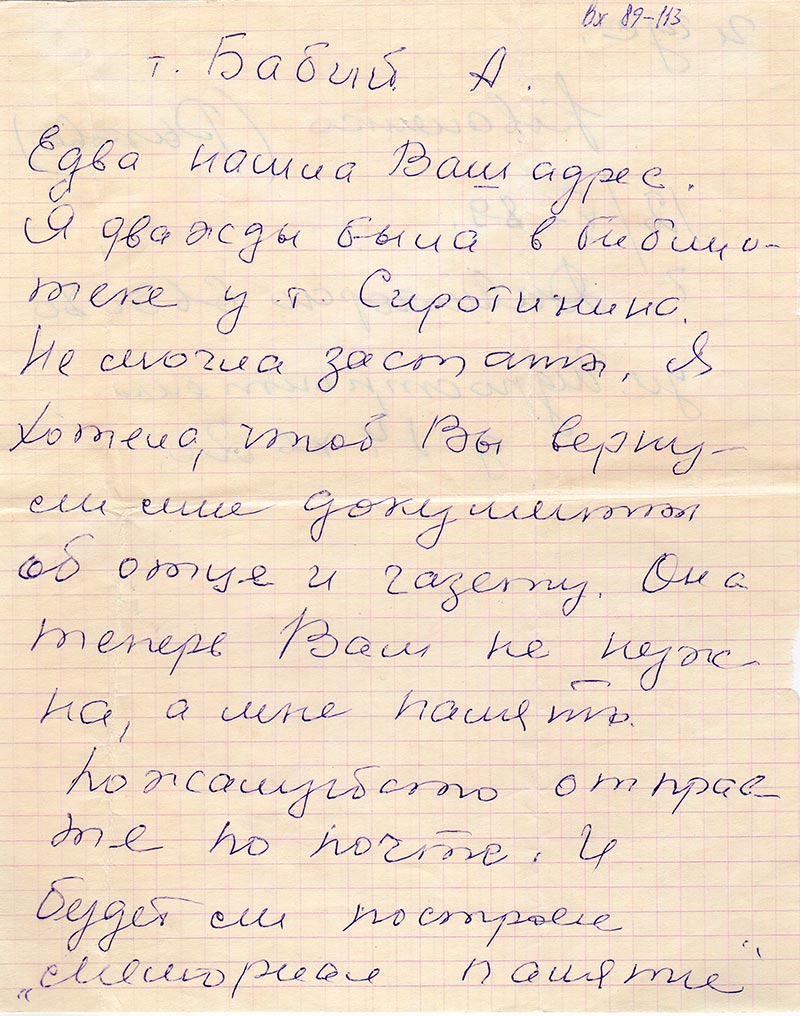 Вх 89-113
т. Бабий А.
Едва нашла Ваш адрес.
Я дважды была в библио-
теке у т Сиротинино.
Не могла застать. Я
хотела, чтоб Вы верну-
ли мне документы
об отце и газету. Она
теперь Вам не нуж-
на, а мне память.
Пожалуйсто отправ-
те по почте. И
будет ли построен
„мемориал памяти"